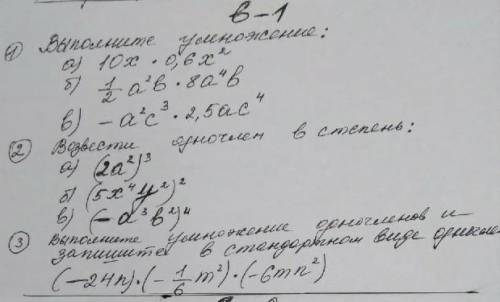 В-1
① Выполните умножение:
а) 10x · 0,6x²
б) 1/2 a²b · 8a⁴b
в) -a²c³ · 2,5ac⁴
② Возвести одночлен в степень:
а) (2a²)³
б) (5x⁴y²)²
в) (-a³b²)⁴
③ Выполните умножение одночленов и
запишите в стандартном виде
(-24n)·(-1/6 m²)·(-6mn²)